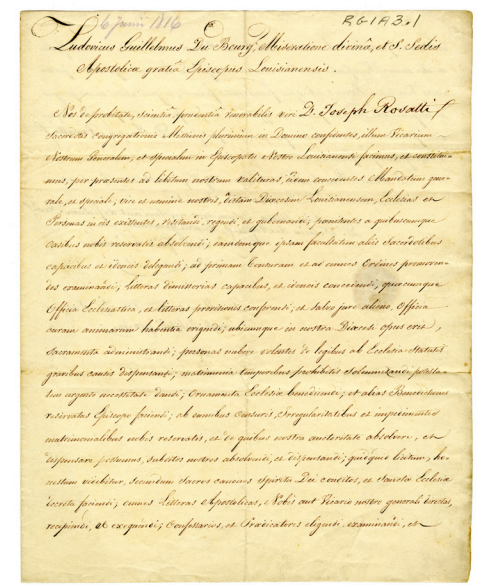 6 Junii 1816
RG1A3.1
Ludovicus Guillelmus Du Bourg, Miseratione divinâ, et S. Sedis
Apostolicæ gratiâ Episcopus Louisianensis.
Nos de probitate, scientiâ, prudentiâ Venerabilis viri D. Joseph Rosatti
Sacerdotis congregationis Missionis plurimum in Domino confidentes, illum Vicarium
Nostrum Generalem, et specialem in Episcopatu Nostro Louisianensi facimus, et constitui-
mus, per præsentes ad libitum nostrum valituras; eidem concedentes Mandatum gene-
rale, et speciale, vice et nomine nostris, totam Diœcesim Louisianensem, Ecclesias et
Personas in eis existentes, visitandi, regendi, et gubernandi; pœnitentes a quibuscumque
Casibus nobis reservatis absolvendi; eamdemque ipsam facultatem aliis Sacerdotibus
capacibus et idoneis delegandi; ad primam Tonsuram et ad omnes Ordines promoven-
dos examinandi; litteras dimissorias capacibus, et idoneis concedendi; quæcumque
Officia Ecclesiastica, et litteras provisionis conferendi; et salvo jure alieno, Officia
curam animarum habentia erigendi; ubicumque in nostra Diœcesi opus erit,
Sacramenta administrandi; personas nubere volentes de legibus ab Ecclesia statutis
gravibus causis dispensandi; matrimonia temporibus prohibitis solemnizandi potesta-
tem urgente necessitate dandi; Ornamenta Ecclesiæ benedicendi; et alias Benedictiones
reservatas Episcopo faciendi; ab omnibus Censuris, irregularitatibus et impedimentis
matrimonialibus nobis reservatis, et de quibus nostra auctoritate absolvere, et
dispensare possumus, subditos nostros absolvendi, et dispensandi; quidquid licitum, ho-
nestum videbitur, secundum sacros canones spiritu Dei conditos, et sanctæ Ecclesiæ
decreta faciendi; omnes Litteras Apostolicas, Nobis aut Vicario nostro generali directas,
recipiendi, et exequendi; Confessarios, et Prædicatores eligendi, examinandi, et